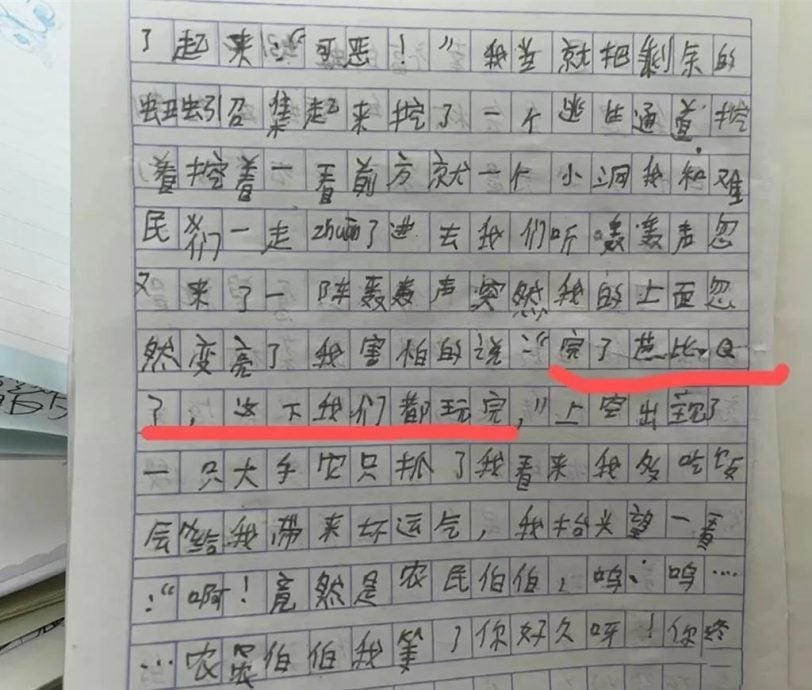 了起来：“可恶！”我并就把剩余的
蚯蚓召集起来挖了一个逃生通道，挖
着挖着一看前方就一个小洞我和难
民们一走zhuan了进去我们听轰轰声忽
又来了一阵轰轰声突然我的上面忽
然变亮了我害怕的说：“完了芭比Q
了，这下我们都玩完，”上空出现了
一只大手农只抓了我看来我多吃饭
会给我带来坏运气，我抬头望一看
：“啊！竟然是农民伯伯，呜呜…
…农民伯伯我等了你好久呀！你终